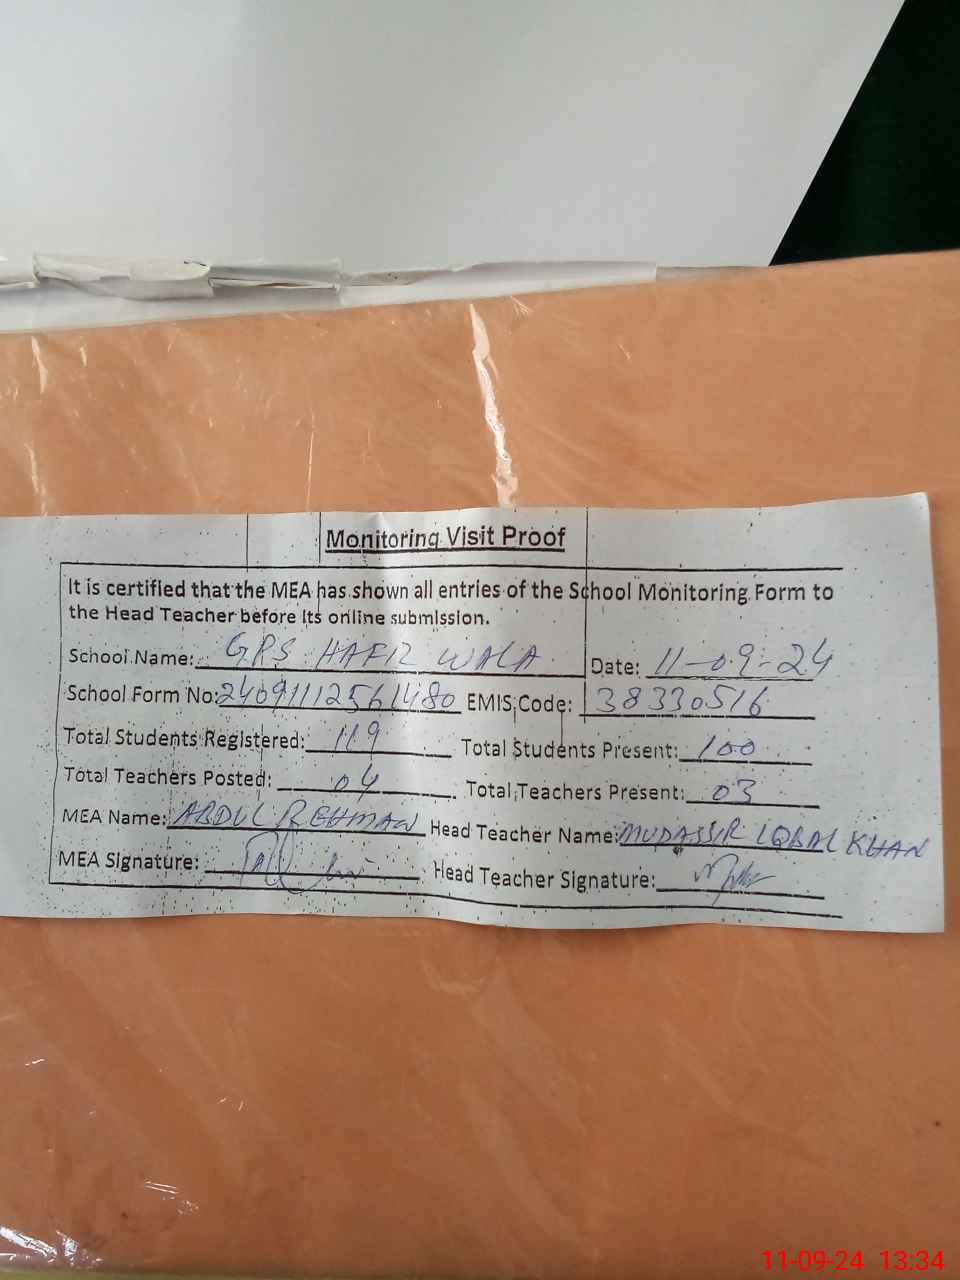 Monitoring Visit Proof
It is certified that the MEA has shown all entries of the School Monitoring Form to
the Head Teacher before its online submission.
School Name: GPS HAFIZ WALA Date: 11-09-24
School Form No: 24091112561480 EMIS Code: 38330516
Total Students Registered: 119 Total Students Present: 100
Total Teachers Posted: 04 Total Teachers Present: 03
MEA Name: ABDUL REHMAN Head Teacher Name: MUDASSIR IQBAL KHAN
MEA Signature: Head Teacher Signature:
11-09-24 13:34